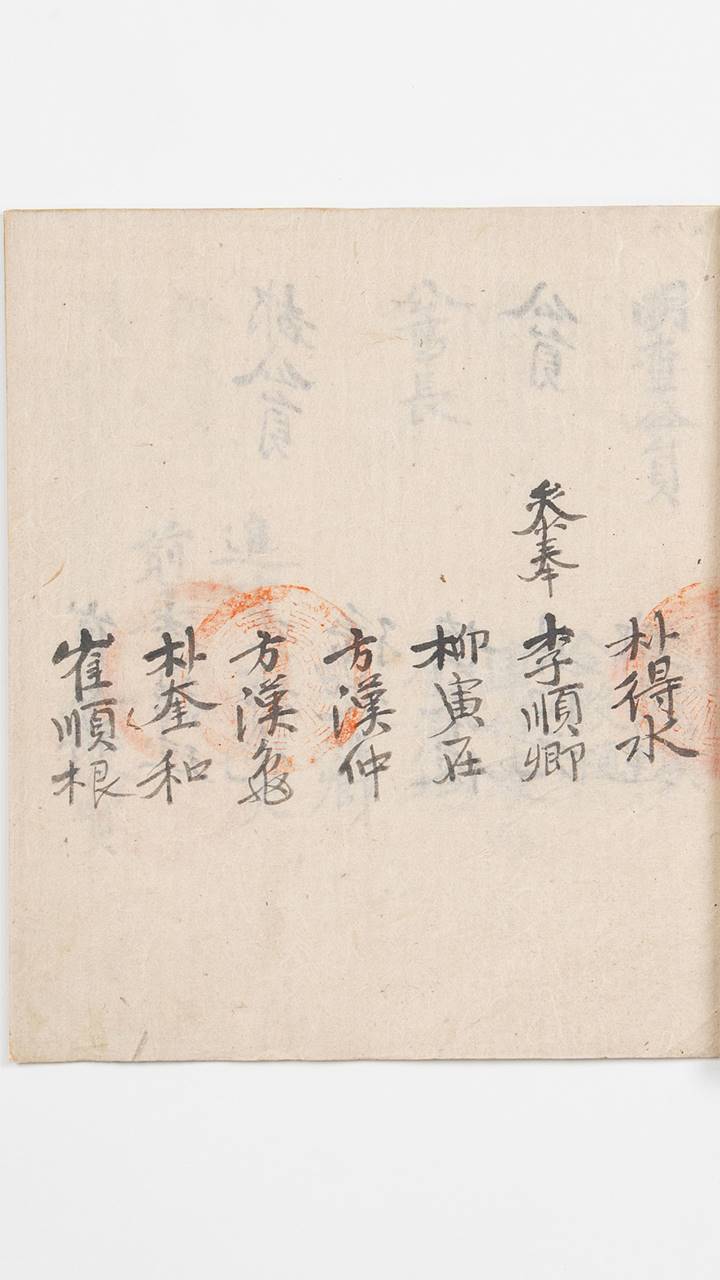 朴得水
參奉 李順卿
柳寅在
方漢仲
方漢龜
朴奎和
崔順根